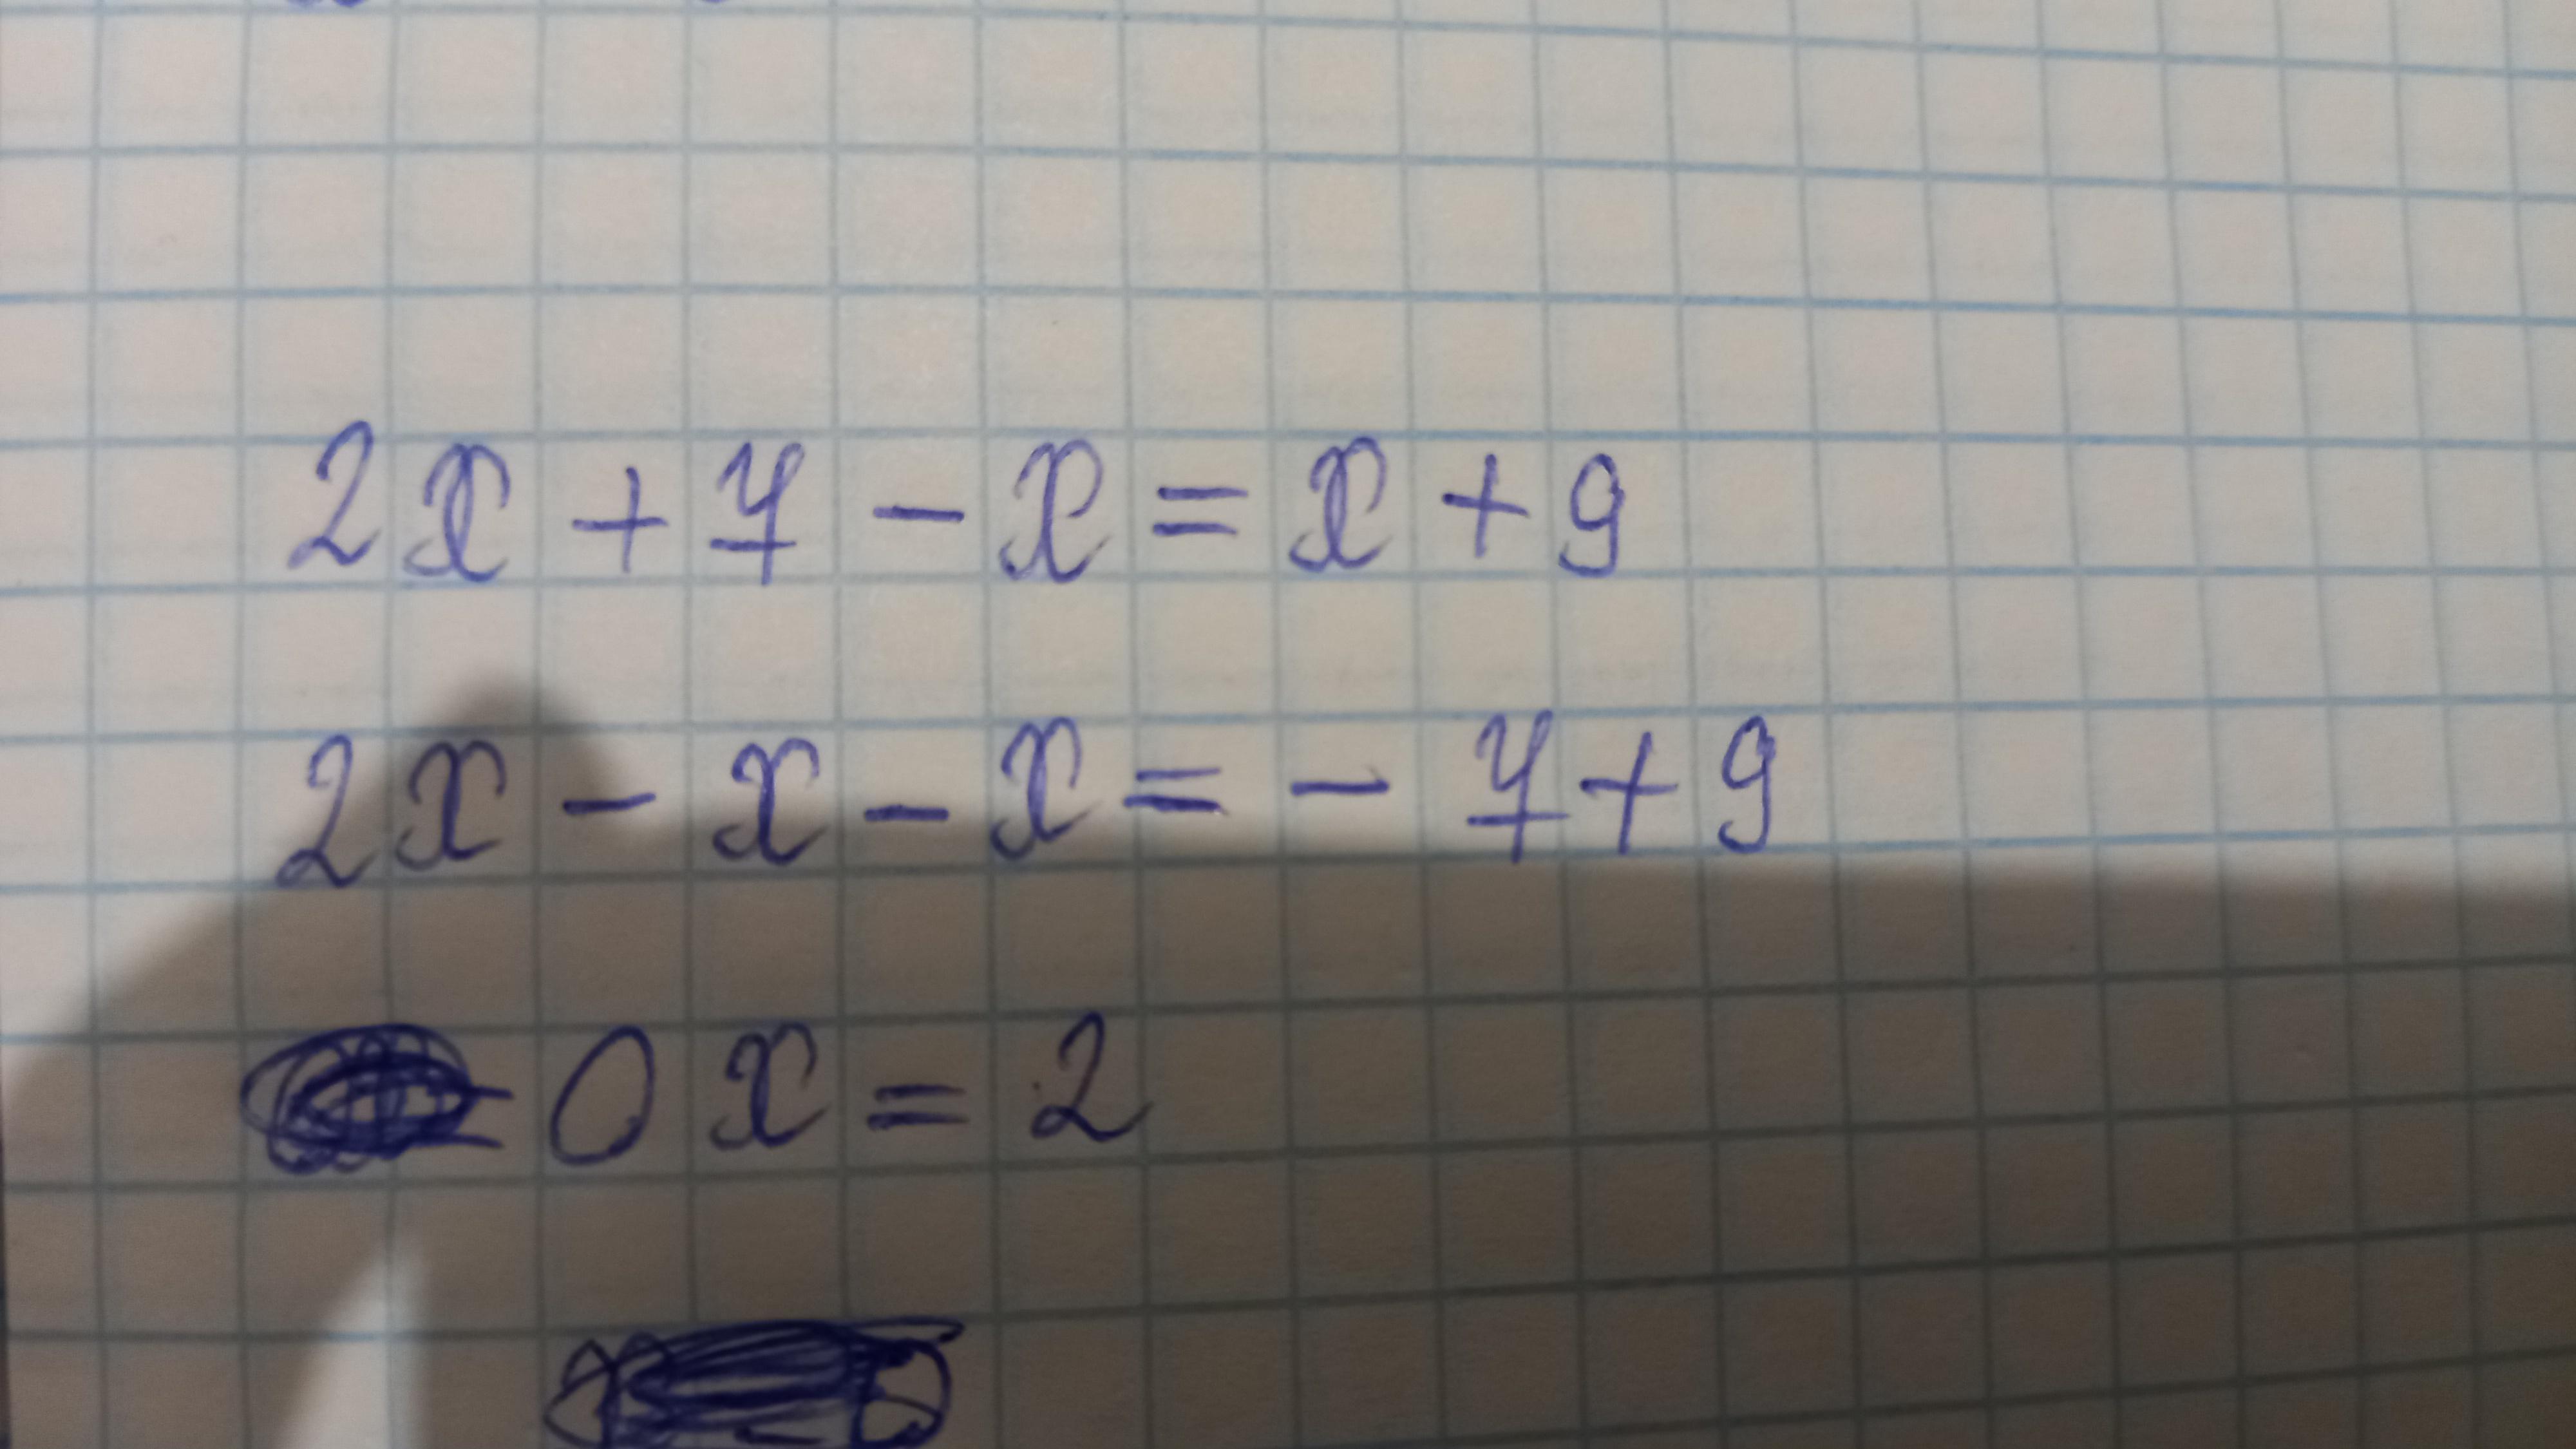 2x + 7 - x = x + 9
2x - x - x = - 7 + 9
0x = 2